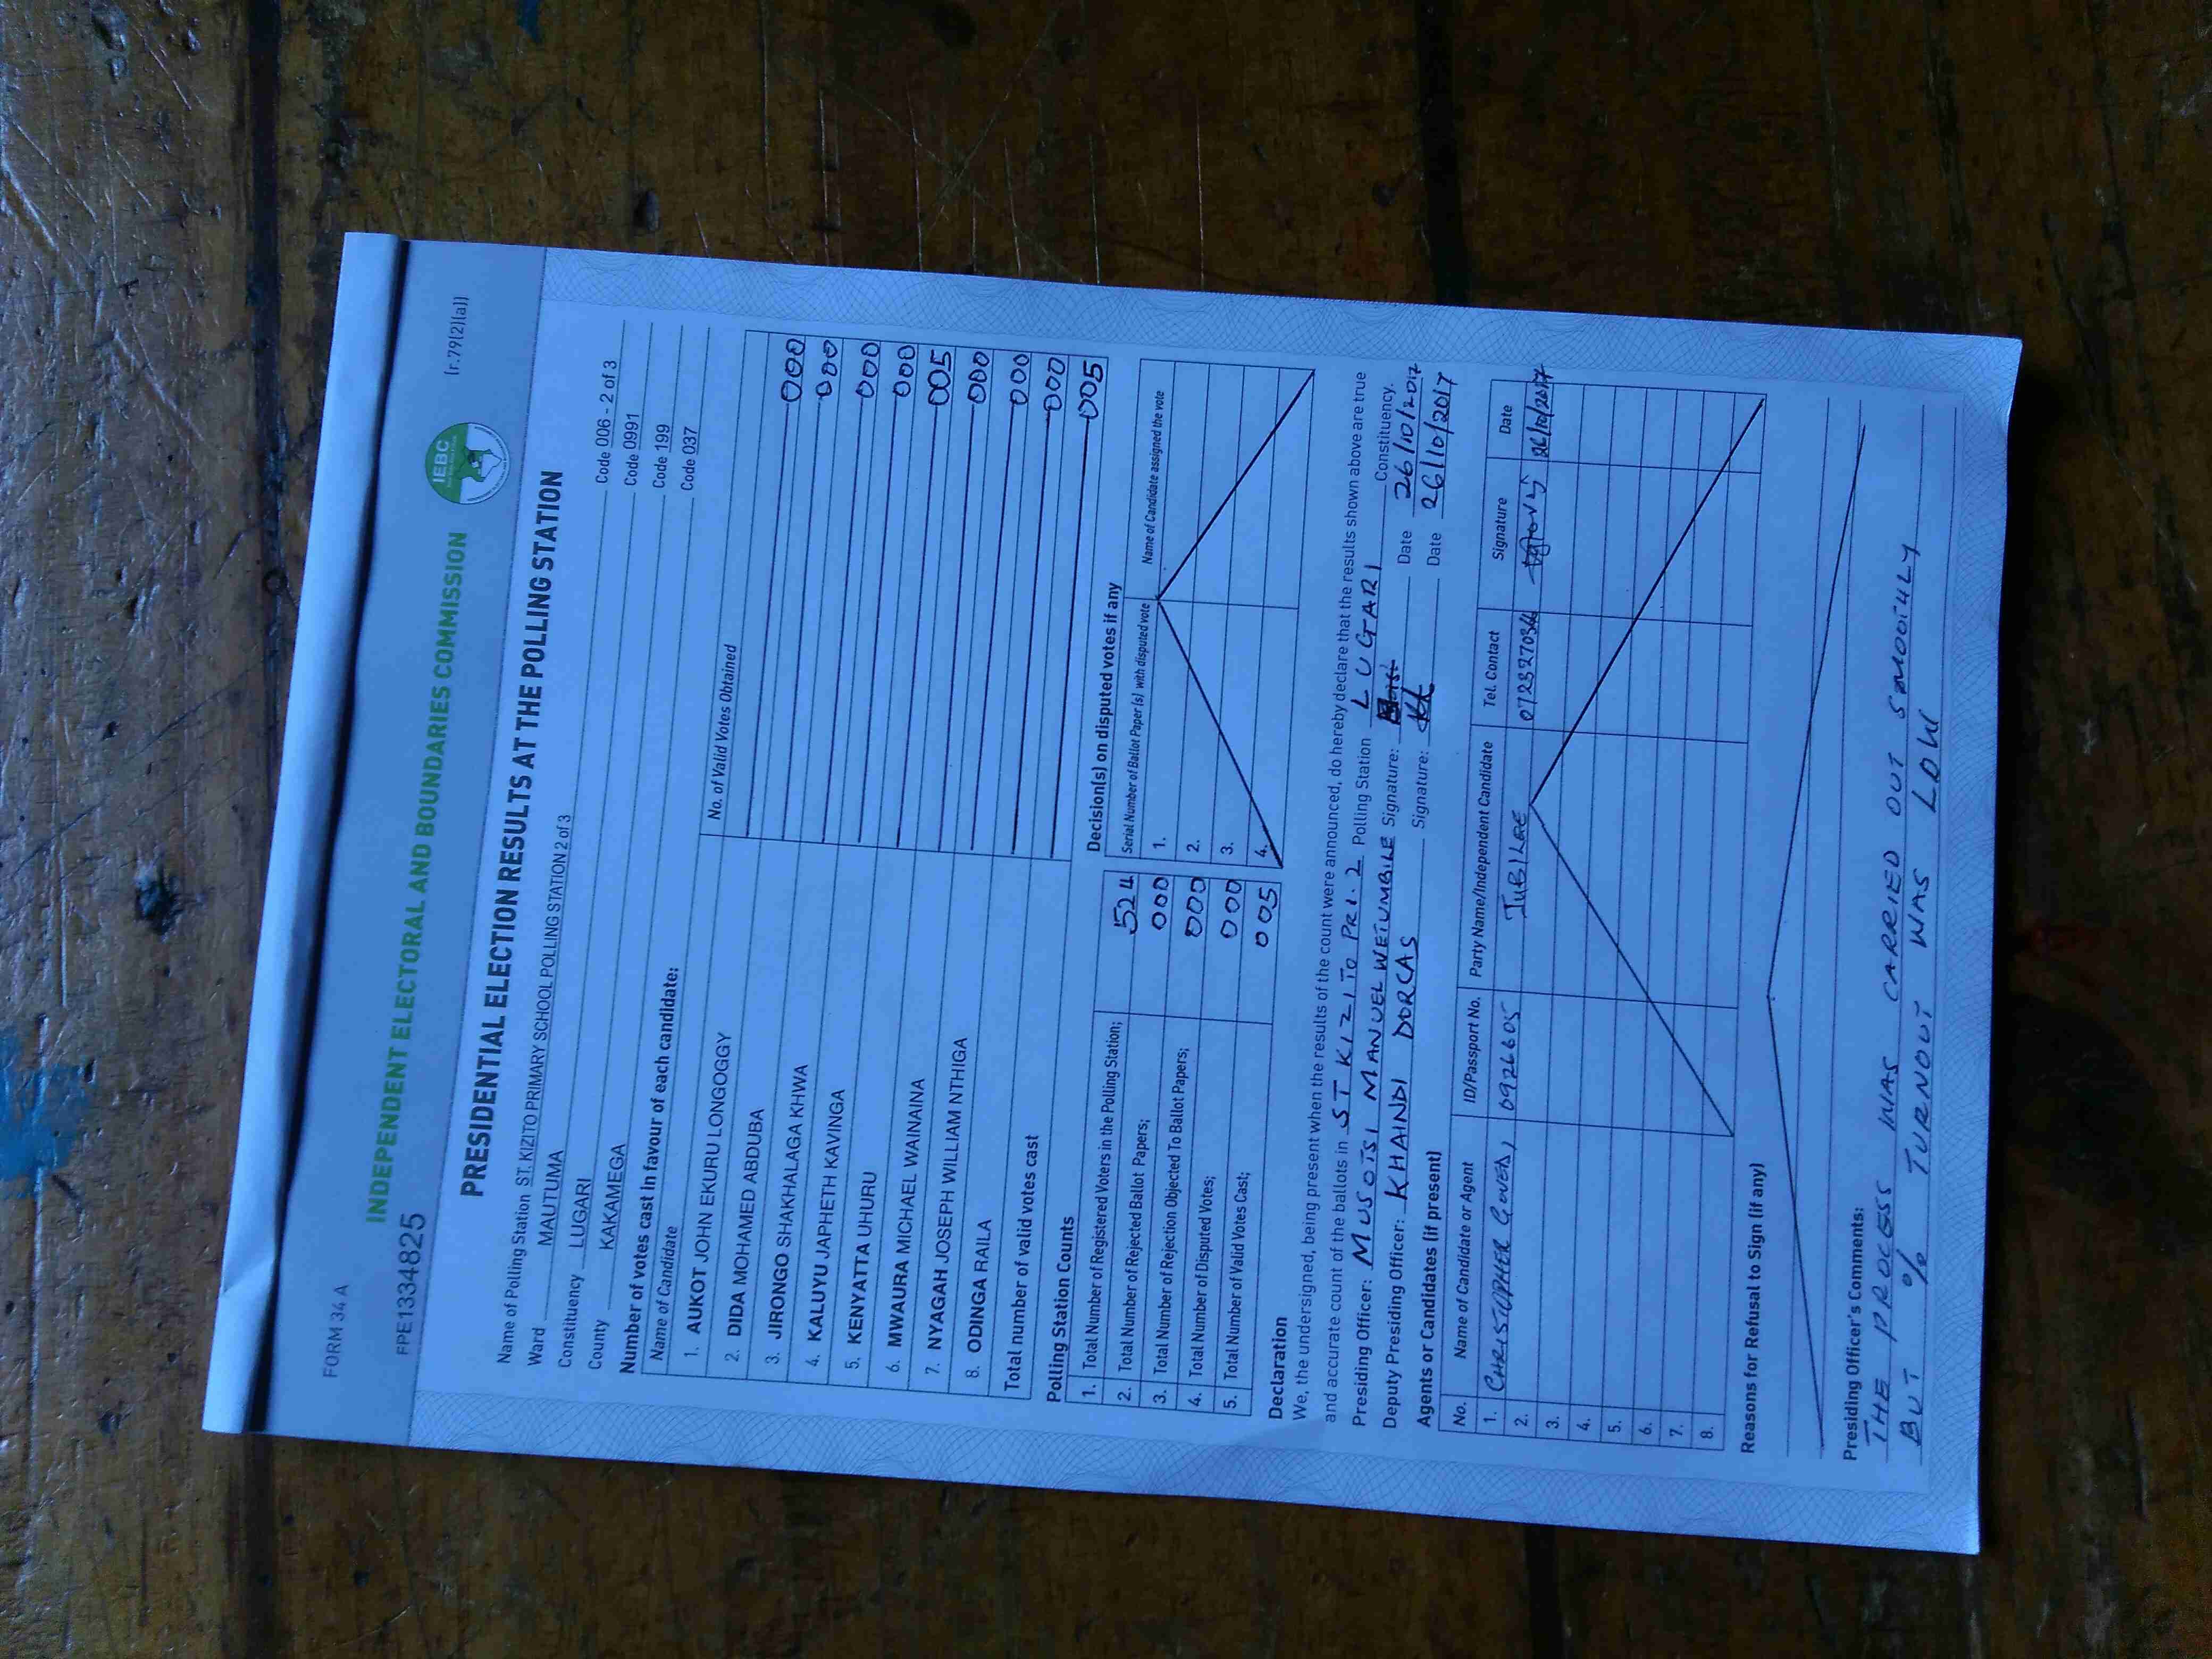 FORM 34 A
[r.79(2)(a)]
IEBC
INDEPENDENT ELECTORAL AND BOUNDARIES COMMISSION
FPE1334825
PRESIDENTIAL ELECTION RESULTS AT THE POLLING STATION
Name of Polling Station ST. KIZITO PRIMARY SCHOOL POLLING STATION 2 of 3 Code 006 - 2 of 3
Ward MAUTUMA Code 0991
Constituency LUGARI Code 199
County KAKAMEGA Code 037
Number of votes cast in favour of each candidate:
Name of Candidate No. of Valid Votes Obtained
1. AUKOT JOHN EKURU LONGOGGY 000
2. DIDA MOHAMED ABDUBA 000
3. JIRONGO SHAKHALAGA KHWA 000
4. KALUYU JAPHETH KAVINGA 000
5. KENYATTA UHURU 005
6. MWAURA MICHAEL WAINAINA 000
7. NYAGAH JOSEPH WILLIAM NTHIGA 000
8. ODINGA RAILA 000
Total number of valid votes cast 005
Polling Station Counts
1. Total Number of Registered Voters in the Polling Station; 524
2. Total Number of Rejected Ballot Papers; 000
3. Total Number of Rejection Objected To Ballot Papers; 000
4. Total Number of Disputed Votes; 000
5. Total Number of Valid Votes Cast; 005
Decision(s) on disputed votes if any
Serial Number of Ballot Paper (s) with disputed vote Name of Candidate assigned the vote
1.
2.
3.
4.
Declaration
We, the undersigned, being present when the results of the count were announced, do hereby declare that the results shown above are true
and accurate count of the ballots in ST KIZITO PRI. 2 Polling Station LUGARI Constituency.
Presiding Officer: MUSOTSI MANUEL WETUMBILE Signature: Date 26/10/2017
Deputy Presiding Officer: KHAINDI DORCAS Signature: Date 26/10/2017
Agents or Candidates (if present)
No. Name of Candidate or Agent ID/Passport No. Party Name/Independent Candidate Tel. Contact Signature Date
1. CHRISTOPHER 09266605 JUBILEE 0723270346 26/10/2017
2.
3.
4.
5.
6.
7.
8.
Reasons for Refusal to Sign (if any)
Presiding Officer's Comments:
THE PROCESS WAS CARRIED OUT SMOOTHLY
BUT % TURNOUT WAS LOW